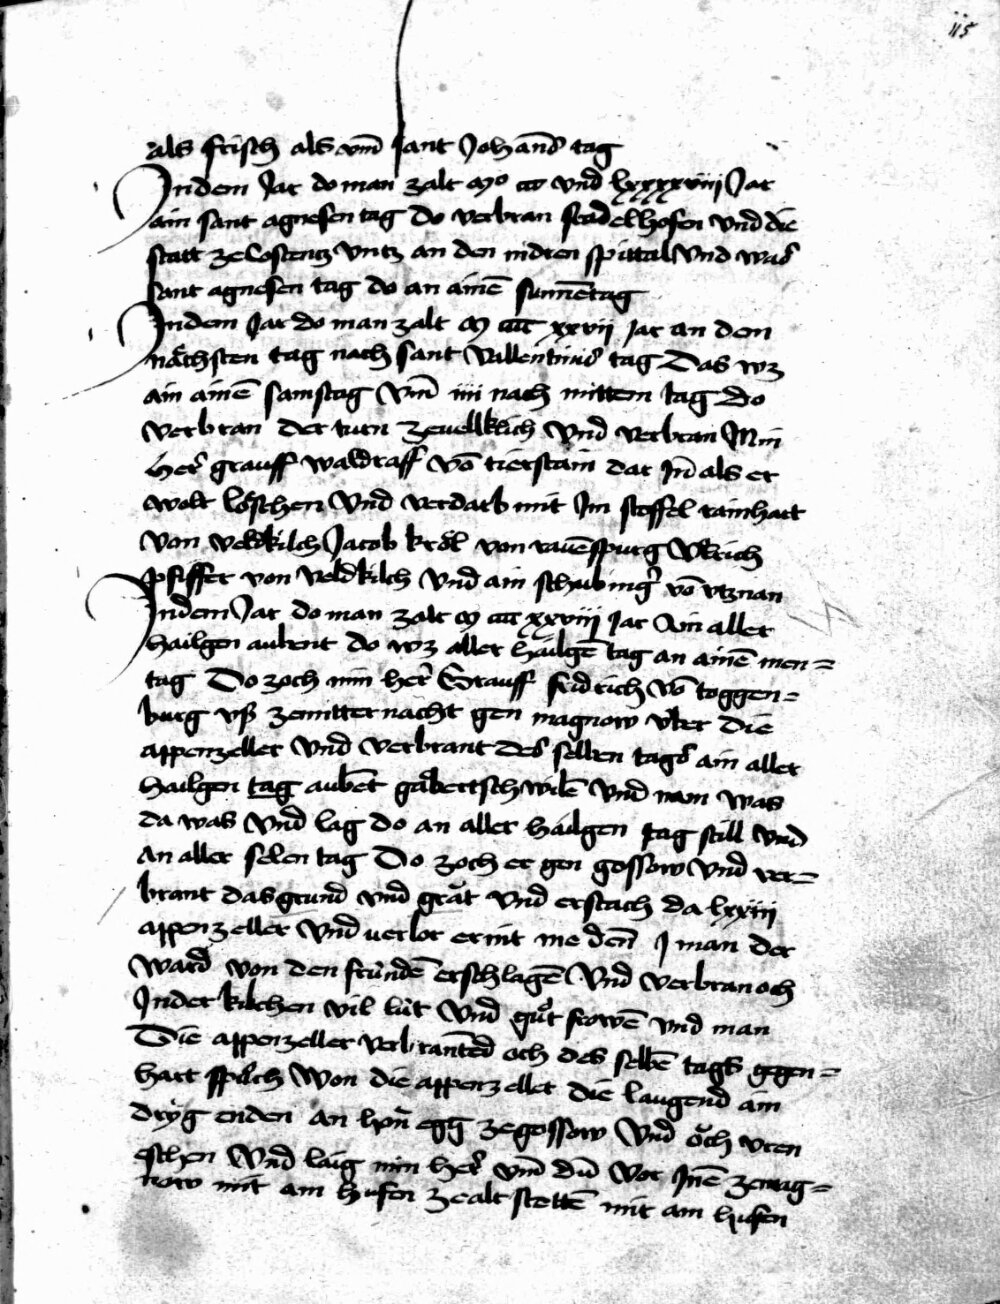 115
als frisch als vm̄ sant Johans tag
Indem Jar do man zalt mo ccc vnd lxxxxviii Jar
ain sant agnesen tag do verbran stadelhofen vnd die
statt ze Costentz vntz an den nidren spittal vnd was
sant agnesen tag do an ainē sunnētag
Indem Jar do man zalt m cccc xxvii jar an dem
nächsten tag nach sant Vallentinus tag Das wz
ain ainē samstag vm̄ iiii nach mittem tag do
verbran der turn ze veltkilch vnd verbran Min
her grauff waldraff vō tierstain dar Jn̄ als er
wolt löschen vnd verdarb mit Jm stoffel rainhart
von veldkilch Jacob kröl von rauēspurg Vlrich
pfiffer von veldkilch vnd ain schubinger vō vtznan
Indem Jar do man zalt m cccc xxviii jar Ain aller
hailgen aubent do wz aller hailgē tag an ainē men=
tag Do zoch min her Grauff fridrich vō toggen=
burg vß ze mitternacht gen magnow vber die
appenzeller vnd verbrant des selben tags ain aller
hailgen tag aubēt gäbertschwilē vnd nam was
da was vnd lag do an aller hailgen tag still vnd
an aller selen tag Do zoch er gen gossow vnd ver=
brant das grund vnd grät vnd erstach da lxxiii
appenzeller vnd verlor er nit me denn J man der
ward von den fründē erschlagē vnd verbran och
Jn der kilchen vil lüt vnd gůt frowē vnd man
Die appenzeller verbranted och des selbē tags gegen=
hart spilch Won die appenzeller die laugend ain
dryg enden an hn̄ egg ze gossow vnd öch vren
eschen vnd laig min her vm̄ du vor Jnē ze mag=
now mit am hufen ze altstettē mit am hufen